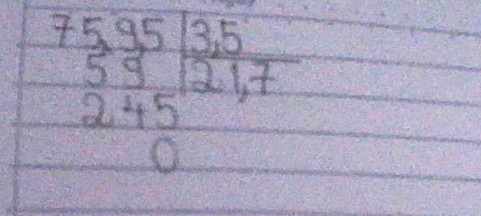 75,9,5 3,5
59 21,7
245
0